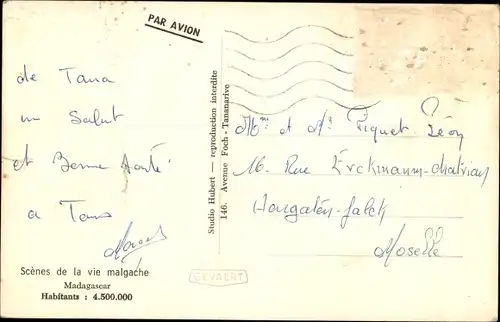 PAR AVION
de Tana
un Salut
et Bonne Santé
a Tous
Scènes de la vie malgache
Madagascar
Habitants : 4.500.000
Studio Hubert — reproduction interdite
146. Avenue Foch - Tananarive
GEVAERT
Mme et Mr Piquet Léon
16. Rue Erckmann-chatrian
Moselle